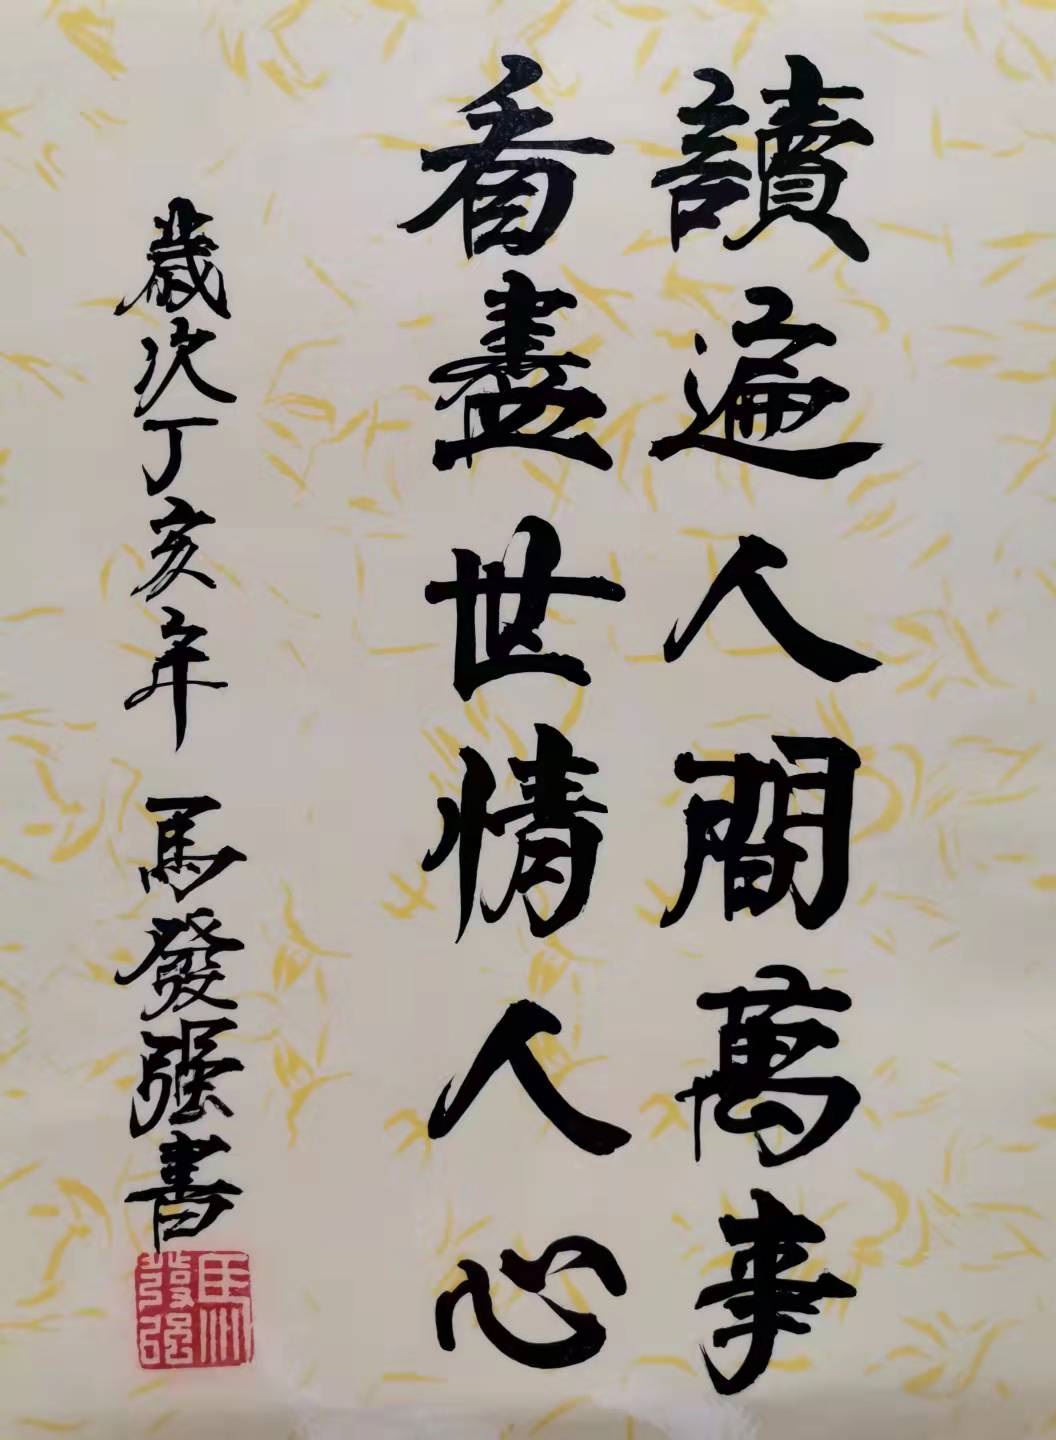 讀遍人間萬事
看盡世情人心
歲次丁亥年 馬發强書
馬發强